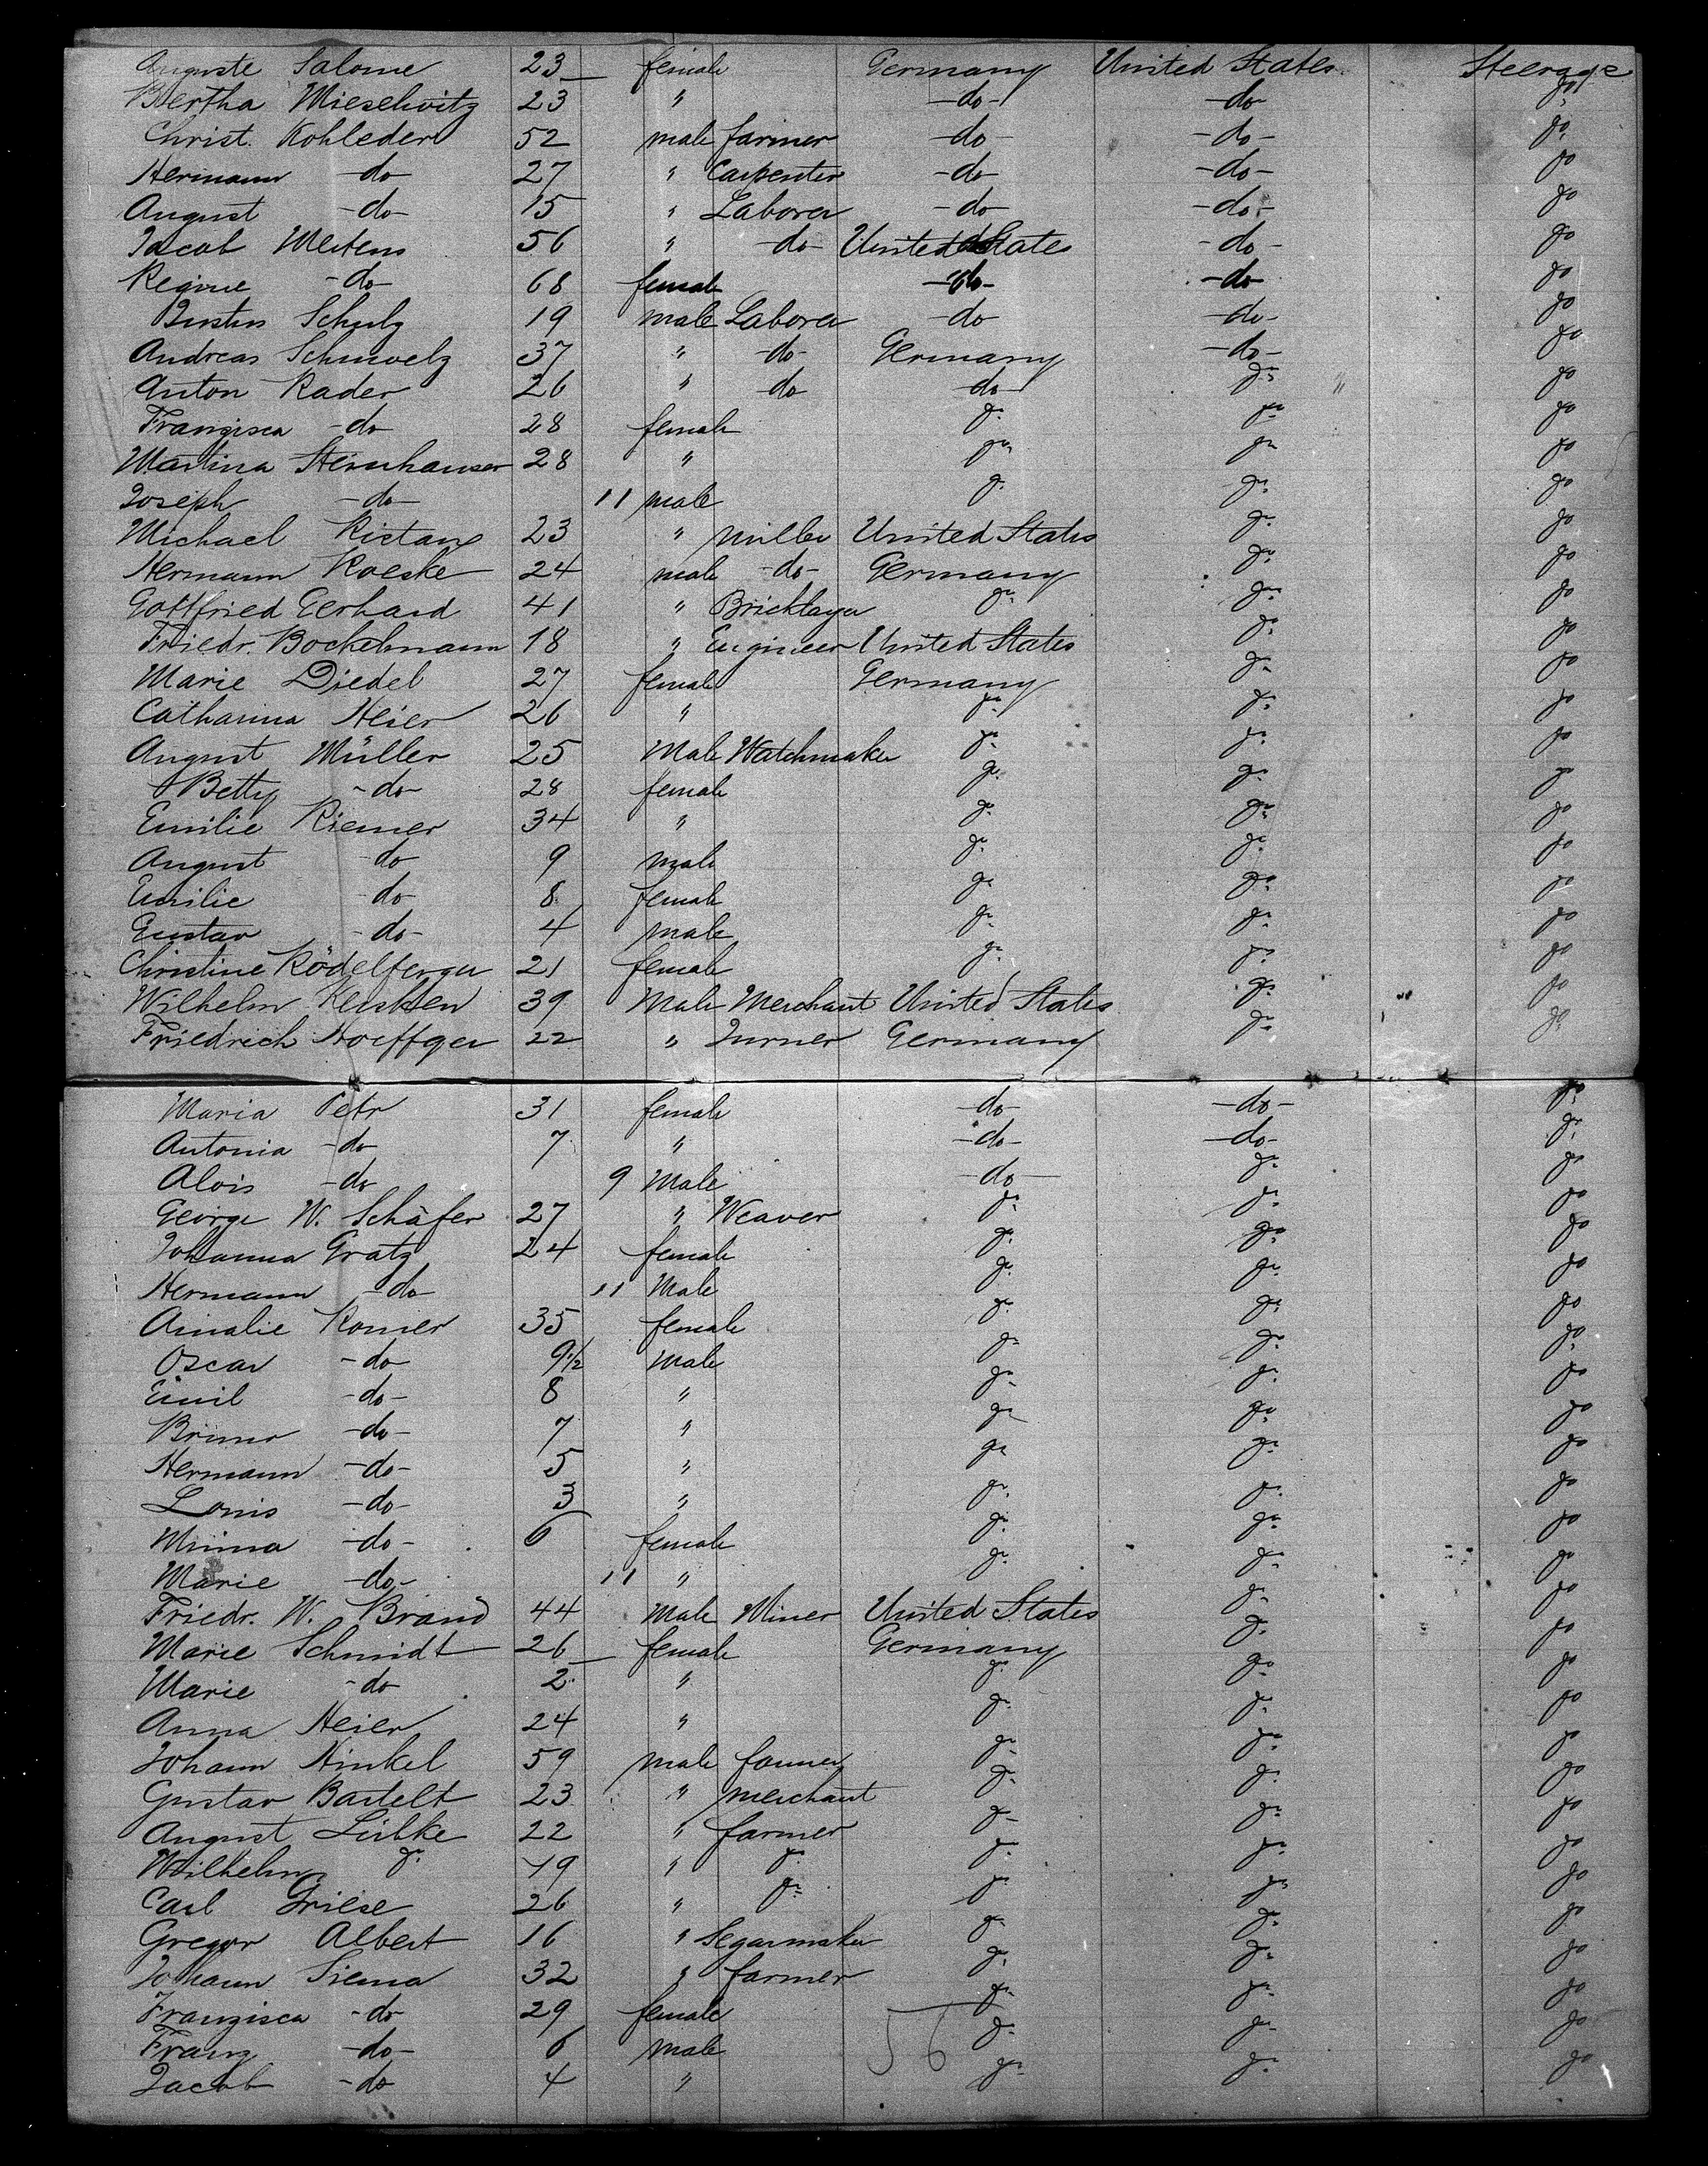 Auguste Salome 23 female Germany United States Steerage
Bertha Mieselwitz 23 " -do- -do- do
Christ. Kohleder 52 male farmer -do- -do- do
Hermann -do- 27 " Carpenter -do- -do- do
August -do- 15 " Laborer -do- -do- do
Jacob Mertens 56 " -do- United States -do- do
Regine -do- 68 female -do- -do- do
Justus Schulz 19 male Laborer -do- -do- do
Andreas Schmoelz 37 " -do- Germany -do- do
Anton Rader 26 " do do do " do
Franzisca -do- 28 female do do do
Martina Steinhauser 28 " do do do
Joseph -do- 11 male do do do
Michael Ristau 23 " miller United States do do
Hermann Roeske 24 male -do- Germany do do
Gottfried Gerhard 41 " Bricklayer do do do
Friedr. Bockelmann 18 " Engineer United States do do
Marie Diedel 27 female Germany do do
Catharina Heier 26 " do do do
August Müller 25 Male Watchmaker do do do
Betty -do- 28 female do do do
Emilie Riemer 34 " do do do
August do 9 male do do do
Emilie do- 8 female do do do
Gustav -do- 4 male do do do
Christine Rödelferger 21 female do do do
Wilhelm Kersten 39 Male Merchant United States do do
Friedrich Hoeffger 22 " Turner Germany do do
Maria Petr 31 female -do- -do- do
Antonia -do 7 " -do- -do- do
Alois -do 9 Male -do- do do
George W. Schäfer 27 " Weaver do do do
Johanna Gratz 24 female do do do
Hermann do 11 Male do do do
Amalie Romer 35 female do do do
Oscar -do- 9½ Male do do do
Emil -do- 8 " do do do
Bruno -do- 7 " do do do
Hermann -do- 5 " do do do
Louis -do- 3 " do do do
Minna -do- 6 female do do do
Marie -do- 11 " do do do
Friedr. W. Brand 44 Male Miner United States do do
Marie Schmidt 26 female Germany do do
Marie -do 2 " do do do
Anna Heier 24 " do do do
Johann Hinkel 59 male farmer do do do
Gustav Bartelt 23 " merchant do do do
August Lübke 22 " farmer do do do
Wilhelm do 19 " do do do do
Carl Griese 26 " do do do do
Gregor Albert 16 " Segarmaker do do do
Johann Siema 32 " farmer do do do
Franzisca -do 29 female do do do
Franz -do- 6 male 56 do do do
Jacob -do 4 " do do do